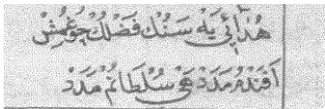 هُدَائِى يَه سَنُكْ فَضْلُكْ چُوغِمِشْ
اَفَنْدُمْ مَدَدْ هَىْ سُلْطَانُمْ مَدَدْ